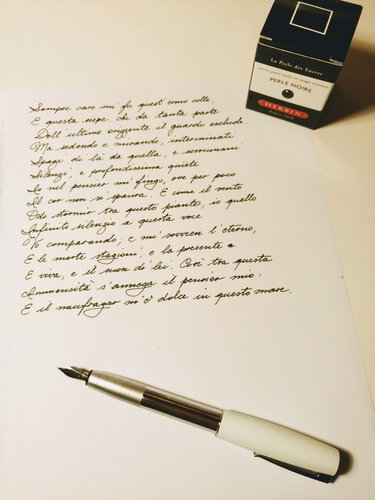 La Perle des Encres
PERLE NOIRE
HERBIN
Sempre caro mi fu quest'ermo colle,
E questa siepe che da tanta parte
Dell'ultimo orizzonte il guardo esclude.
Ma sedendo e mirando, interminati
Spazi di là da quella, e sovrumani
Silenzi, e profondissima quiete
Io nel pensier mi fingo, ove per poco
Il cor non si spaura. E come il vento
Odo stormir tra queste piante, io quello
Infinito silenzio a questa voce
Vo comparando; e mi sovvien l'eterno,
E le morte stagioni, e la presente
E viva, e il suon di lei. Così tra questa
Immensità s'annega il pensier mio:
E il naufragar m'è dolce in questo mare.